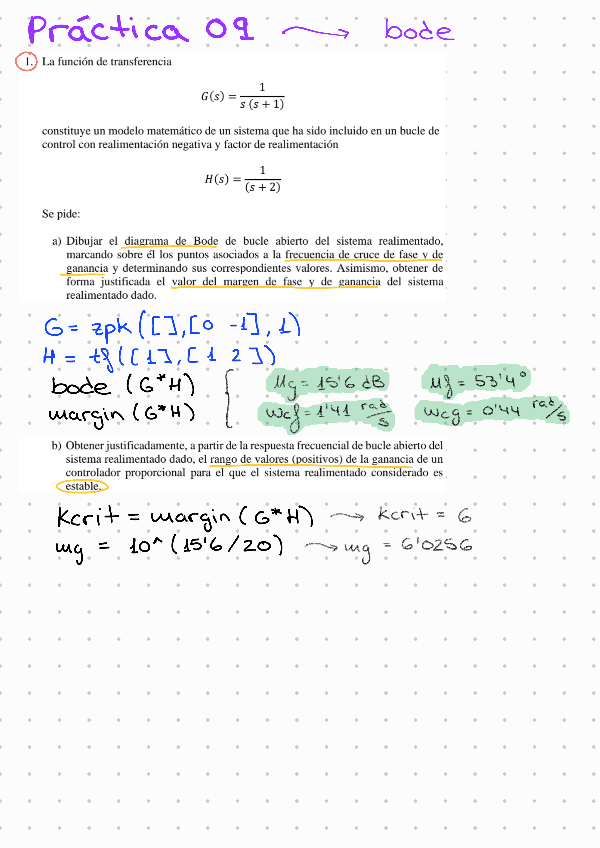 Práctica 09 → bode
1. La función de transferencia
G(s) = 1 / (s (s + 1))
constituye un modelo matemático de un sistema que ha sido incluido en un bucle de
control con realimentación negativa y factor de realimentación
H(s) = 1 / (s + 2)
Se pide:
a) Dibujar el diagrama de Bode de bucle abierto del sistema realimentado,
marcando sobre él los puntos asociados a la frecuencia de cruce de fase y de
ganancia y determinando sus correspondientes valores. Asimismo, obtener de
forma justificada el valor del margen de fase y de ganancia del sistema
realimentado dado.
G = zpk([],[0 -1],1)
H = tf([1],[1 2])
bode (G*H) { Mg = 15'6 dB Mf = 53'4°
margin (G*H) wcf = 1'41 rad/s wcg = 0'44 rad/s
b) Obtener justificadamente, a partir de la respuesta frecuencial de bucle abierto del
sistema realimentado dado, el rango de valores (positivos) de la ganancia de un
controlador proporcional para el que el sistema realimentado considerado es
estable.
Kcrit = margin (G*H) → Kcrit = 6
mg = 10^(15'6/20) → mg = 6'0256